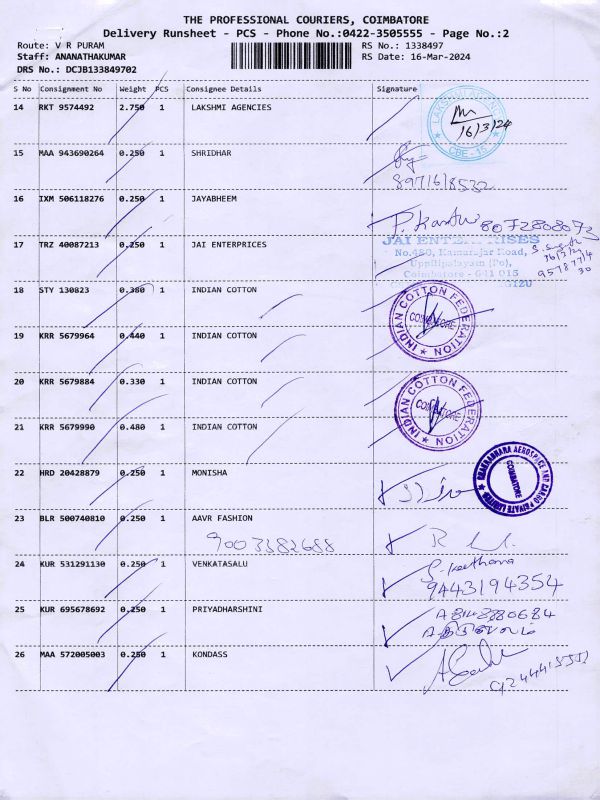 THE PROFESSIONAL COURIERS, COIMBATORE
Delivery Runsheet - PCS - Phone No.:0422-3505555 - Page No.:2
Route: V R PURAM RS No.: 1338497
Staff: ANANATHAKUMAR RS Date: 16-Mar-2024
DRS No.: DCJB133849702
S No Consignment No Weight PCS Consignee Details Signature
14 RKT 9574492 2.750 1 LAKSHMI AGENCIES
16/3/24
CBE-15
15 MAA 943690264 0.250 1 SHRIDHAR
8971618532
16 IXM 506118276 0.250 1 JAYABHEEM
8072808073
17 TRZ 40087213 0.250 1 JAI ENTERPRICES
JAI ENTERPRISES
No.480, Kamarajar Road,
Uppilipalayam (Po),
Coimbatore - 641 015
18 STY 130823 0.380 1 INDIAN COTTON
INDIAN COTTON FEDERATION
COIMBATORE
19 KRR 5679964 0.440 1 INDIAN COTTON
20 KRR 5679884 0.330 1 INDIAN COTTON
INDIAN COTTON FEDERATION
COIMBATORE
21 KRR 5679990 0.480 1 INDIAN COTTON
22 HRD 20428879 0.250 1 MONISHA
AEROSPACE AND CARGO PRIVATE LIMITED
COIMBATORE
23 BLR 500740810 0.250 1 AAVR FASHION
9003382688
24 KUR 531291130 0.250 1 VENKATASALU
9443194354
25 KUR 695678692 0.250 1 PRIYADHARSHINI
26 MAA 572005003 0.250 1 KONDASS